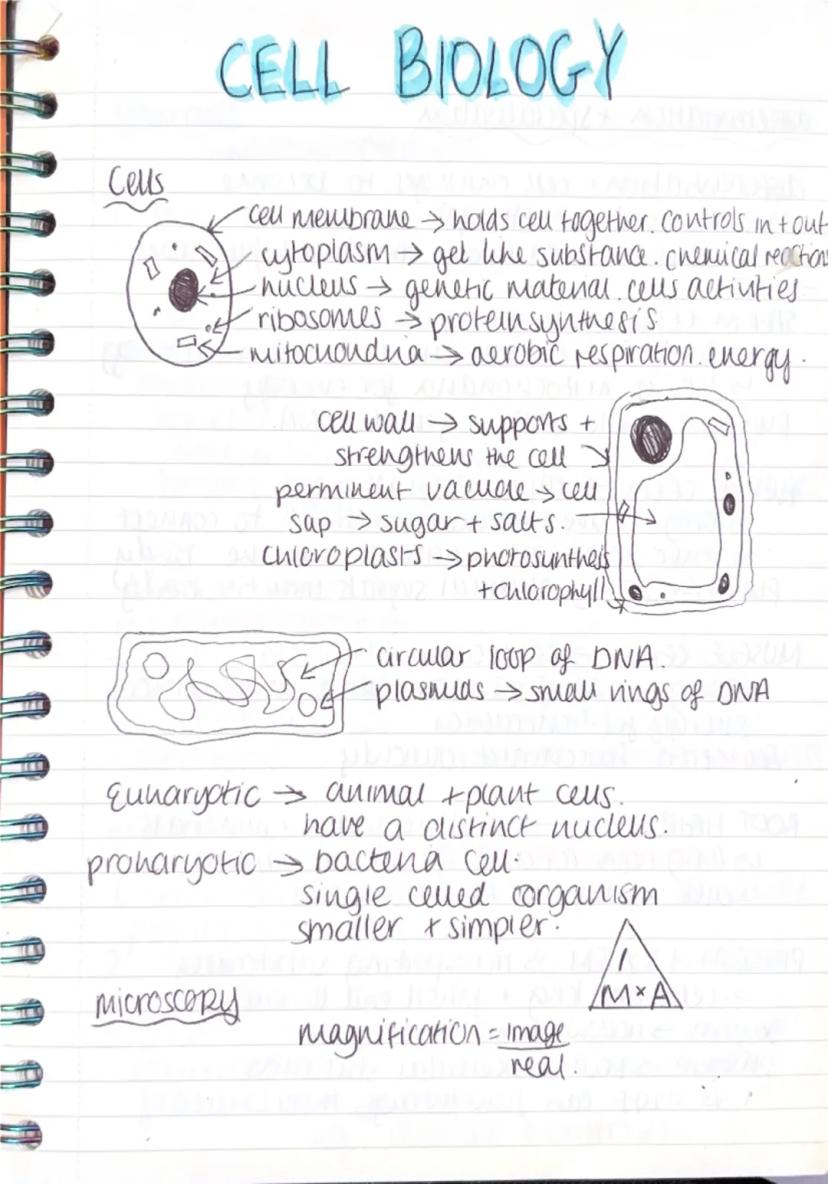 CELL BIOLOGY
Cells
cell membrane → holds cell together. controls in + out
cytoplasm → gel like substance. chemical reactions
nucleus → genetic material. cells activities
ribosomes → protein synthesis.
mitochondria → aerobic respiration. energy.
cell wall → supports +
strengthens the cell
perminent vacuole → cell
sap → sugar + salts.
chloroplasts → photosynthesis
+chlorophyll
circular loop of DNA.
plasmids → small rings of DNA
Eukaryotic → animal + plant cells.
have a distinct nucleus.
prokaryotic → bacteria cell.
single celled organism
smaller + simpler.
I
M × A
microscopy
magnification = image
real.